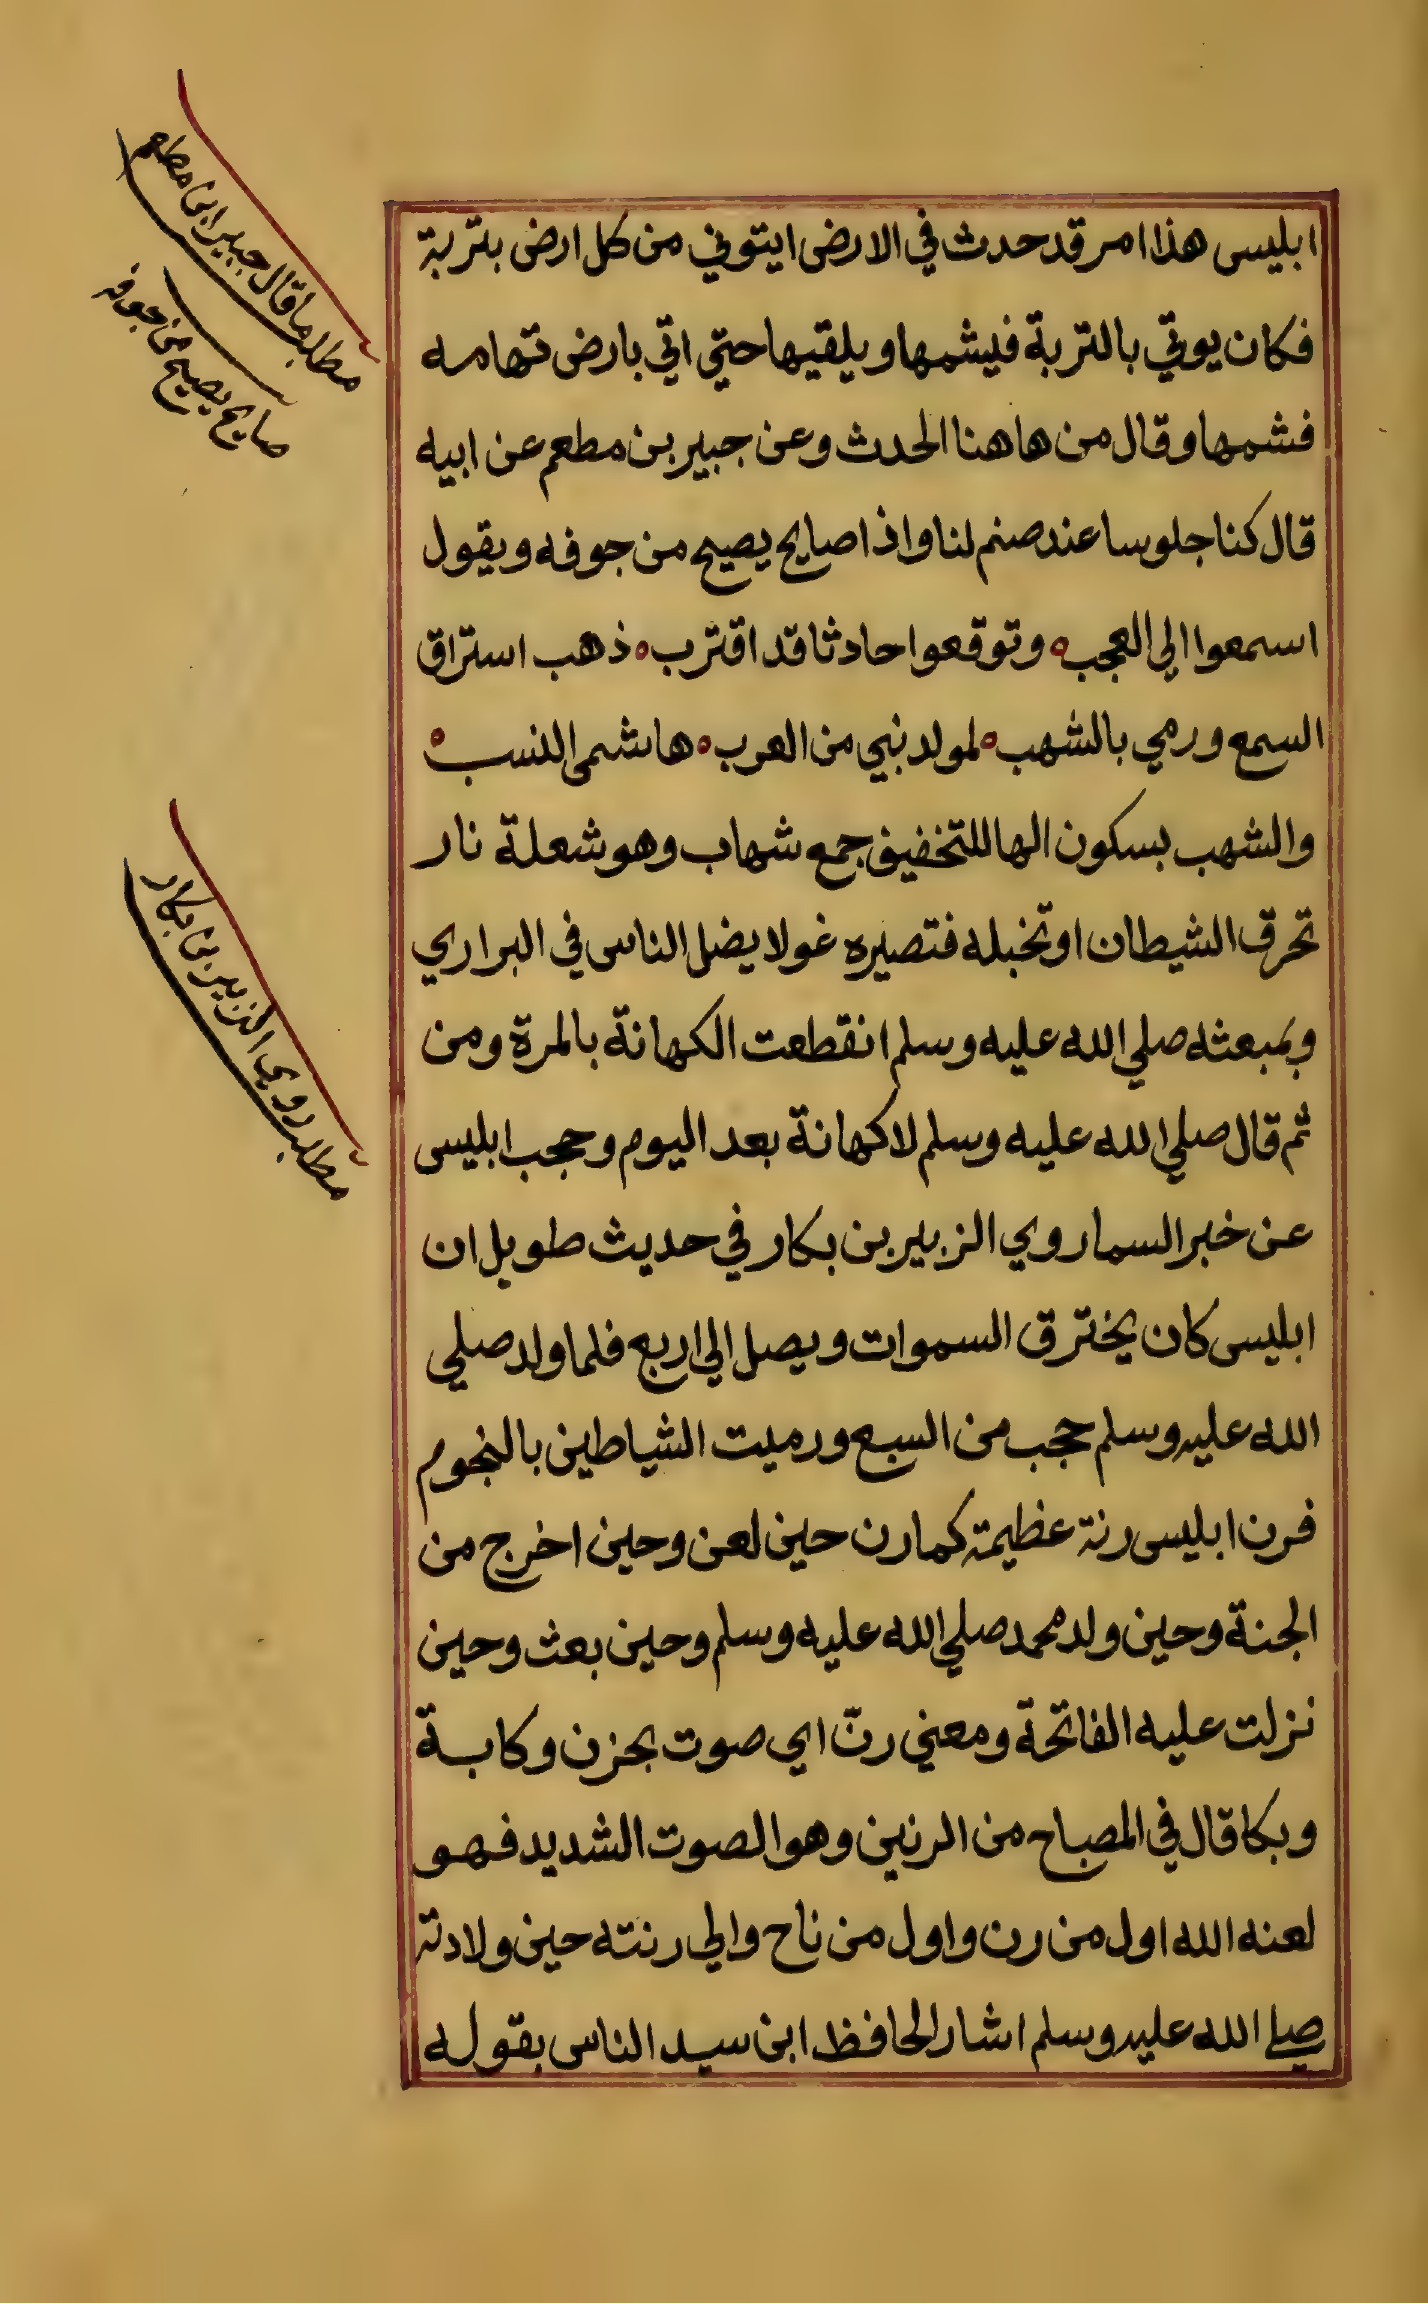 ابليس هذا امر قد حدث في الارض ايتوني من كل ارض بتربة
فكان يوتي بالتربة فيشمها ويلقيها حتي اتي بارض تهامه
فشمها وقال من هاهنا الحدث وعن جبير بن مطعم عن ابيه
قال كنا جلوسا عند صنم لنا واذا صايح يصيح من جوفه ويقول
اسمعوا الي العجب ه وتوقعوا حادثا قد اقترب ه ذهب استراق
السمع ورمي بالشهب ه لمولد نبي من العرب ه هاشمي النسب ه
والشهب بسكون الها للتخفيف جمع شهاب وهو شعلة نار
تحرق الشيطان او تخبله فتصيره غولا يضل الناس في البراري
وبمبعثه صلي الله عليه وسلم انقطعت الكهانة بالمرة ومن
ثم قال صلي الله عليه وسلم لا كهانة بعد اليوم وحجب ابليس
عن خبر السما روي الزبير بن بكار في حديث طويل ان
ابليس كان يخترق السموات ويصل الي اربع فلما ولد صلي
الله عليه وسلم حجب من السبع ورميت الشياطين بالنجوم
فرن ابليس رنة عظيمة كما رن حين لعن وحين اخرج من
الجنة وحين ولد محمد صلي الله عليه وسلم وحين بعث وحين
نزلت عليه الفاتحة ومعني رنّ اي صوت بحزن وكابة
وبكا قال في المصباح من الرنين وهو الصوت الشديد فهو
لعنه الله اول من رن واول من ناح والي رنته حين ولادته
صلي الله عليه وسلم اشار الحافظ ابن سيد الناس بقوله
مطلب ما قال جبير ابن مطعم
صايح يصيح من جوفه
مطلب روي الزبير بن بكار